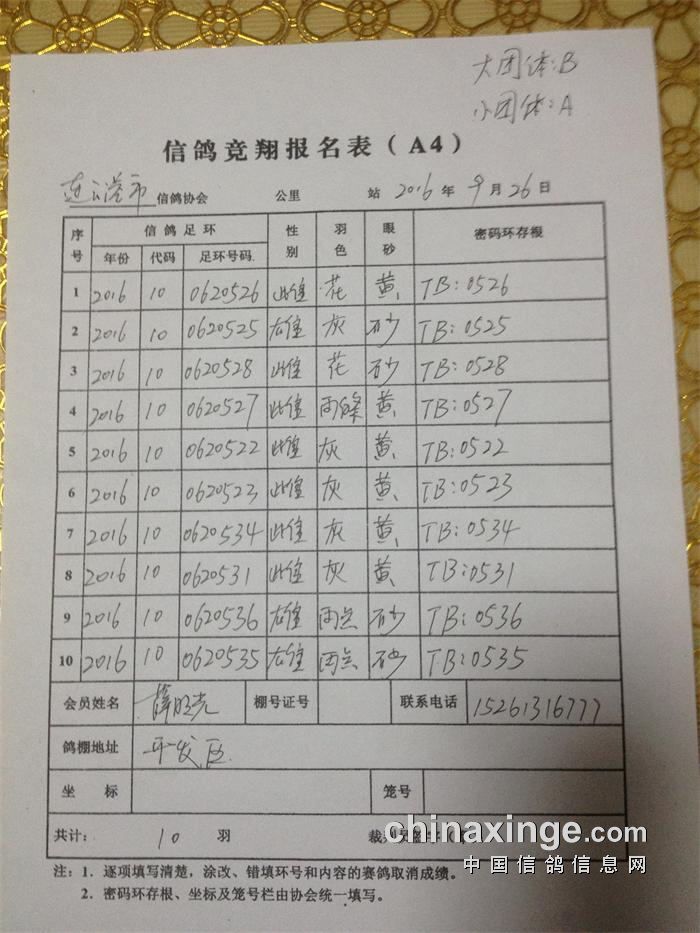 大团体:B
小团体:A
信鸽竞翔报名表(A4)
连云港市 信鸽协会 公里 站 2016 年 9 月 26 日
序号 信鸽足环 性别 羽色 眼砂 密码环存根
年份 代码 足环号码
1 2016 10 0620526 雌 花 黄 TB:0526
2 2016 10 0620525 雄 灰 砂 TB:0525
3 2016 10 0620528 雌 花 砂 TB:0528
4 2016 10 0620527 雌 雨 黄 TB:0527
5 2016 10 0620522 雌 灰 黄 TB:0522
6 2016 10 0620523 雌 灰 黄 TB:0523
7 2016 10 0620534 雌 灰 黄 TB:0534
8 2016 10 0620531 雌 灰 黄 TB:0531
9 2016 10 0620536 雄 雨点 砂 TB:0536
10 2016 10 0620535 雄 雨点 砂 TB:0535
会员姓名 薛 棚号证号 联系电话 15261316777
鸽棚地址 开发区
坐标 笼号
共计: 10 羽 裁判员
chinaxinge.com
中国信鸽信息网
注:1．逐项填写清楚，涂改、错填环号和内容的赛鸽取消成绩。
2．密码环存根、坐标及笼号栏由协会统一填写。